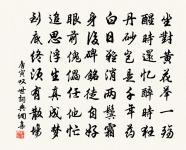 坐對黃花舉一觴
醒時還憶醉時狂
丹砂豈是千年藥
白日難消兩鬢霜
身後碑銘徒自好
眼前傀儡任他忙
追思浮生真成夢
到底終須有散場
唐寅嘆世詞典網書